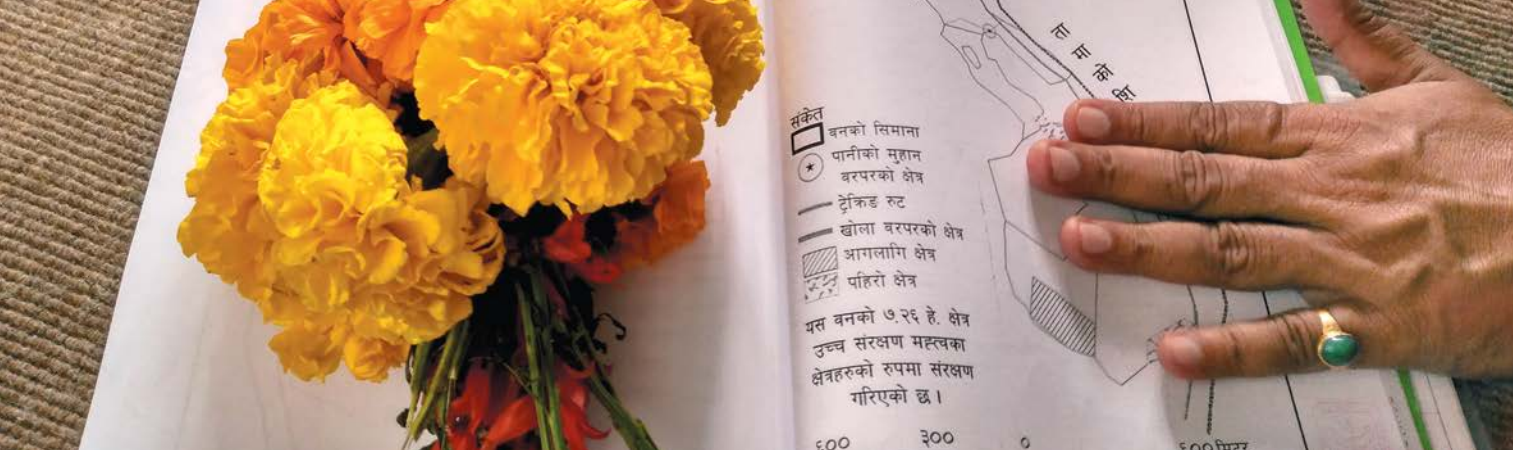 ता मा को शि
संकेत
वनको सिमाना
पानीको मुहान
वरपरको क्षेत्र
ट्रेकिङ रुट
खोला वरपरको क्षेत्र
आगलागि क्षेत्र
पहिरो क्षेत्र
यस वनको ७.२६ हे. क्षेत्र
उच्च संरक्षण महत्वका
क्षेत्रहरुको रुपमा संरक्षण
गरिएको छ।
६०० ३०० ० ६००मिटर